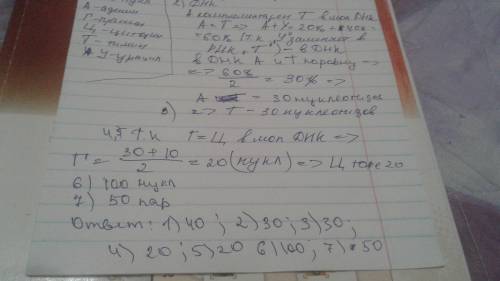 А - аденин
Г - гуанин
Ц - цитозин
Т - тимин
У - урацил
2) ДНК
А комплементарен Т в мол ДНК
А = Т => А + У = 20% + 40% =
= 60% (т.к "У" заменяет в
РНК "Т") - в ДНК
в ДНК А и Т поровну =>
=> 60% / 2 = 30% =>
А = 30 нуклеотидов
3) => Т - 30 нуклеотидов
4,5 Т.к Г = Ц в мол ДНК =>
Г = 30 + 10 / 2 = 20 (нукл) => Ц тоже 20
6) 100 нукл
7) 50 пар
Ответ: 1) 40; 2) 30; 3) 30;
4) 20; 5) 20 6) 100; 7) 50